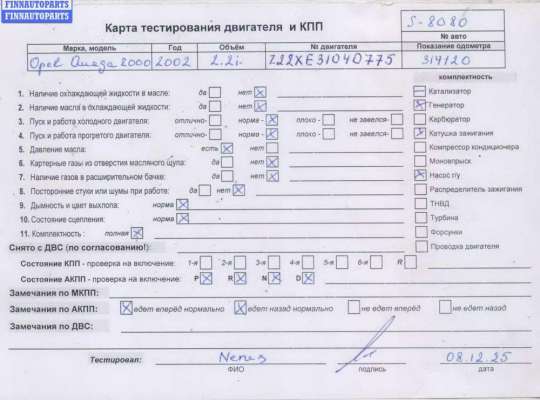 FINNAUTOPARTS
FINNAUTOPARTS
Карта тестирования двигателя и КПП
S-8080
№ авто
Марка, модель Год Объём № двигателя Показания одометра
Opel Omega 2000 2002 2.2i. Z22XE31040775 314120
комплектность
1. Наличие охлаждающей жидкости в масле: да нет
Катализатор
2. Наличие масла в охлаждающей жидкости: да нет
Генератор
3. Пуск и работа холодного двигателя: отлично- норма - плохо - не завелся-
Карбюратор
4. Пуск и работа прогретого двигателя: отлично- норма - плохо - не завелся-
Катушка зажигания
5. Давление масла: есть нет
Компрессор кондиционера
6. Картерные газы из отверстия масляного щупа: да нет
Моновпрыск
7. Наличие газов в расширительном бачке: да нет
Насос г/у
8. Посторонние стуки или шумы при работе: да нет
Распределитель зажигания
9. Дымность и цвет выхлопа: норма
ТНВД
10. Состояние сцепления: норма
Турбина
11. Комплектность : полная
Форсунки
Снято с ДВС (по согласованию!):
Проводка двигателя
Состояние КПП - проверка на включение: 1-я 2-я 3-я 4-я 5-я 6-я R
Состояние АКПП - проверка на включение: P R N D
Замечания по МКПП:
Замечания по АКПП: едет вперёд нормально едет назад нормально не едет вперёд не едет назад
Замечания по ДВС:
Тестировал: 08.12.25
ФИО подпись дата